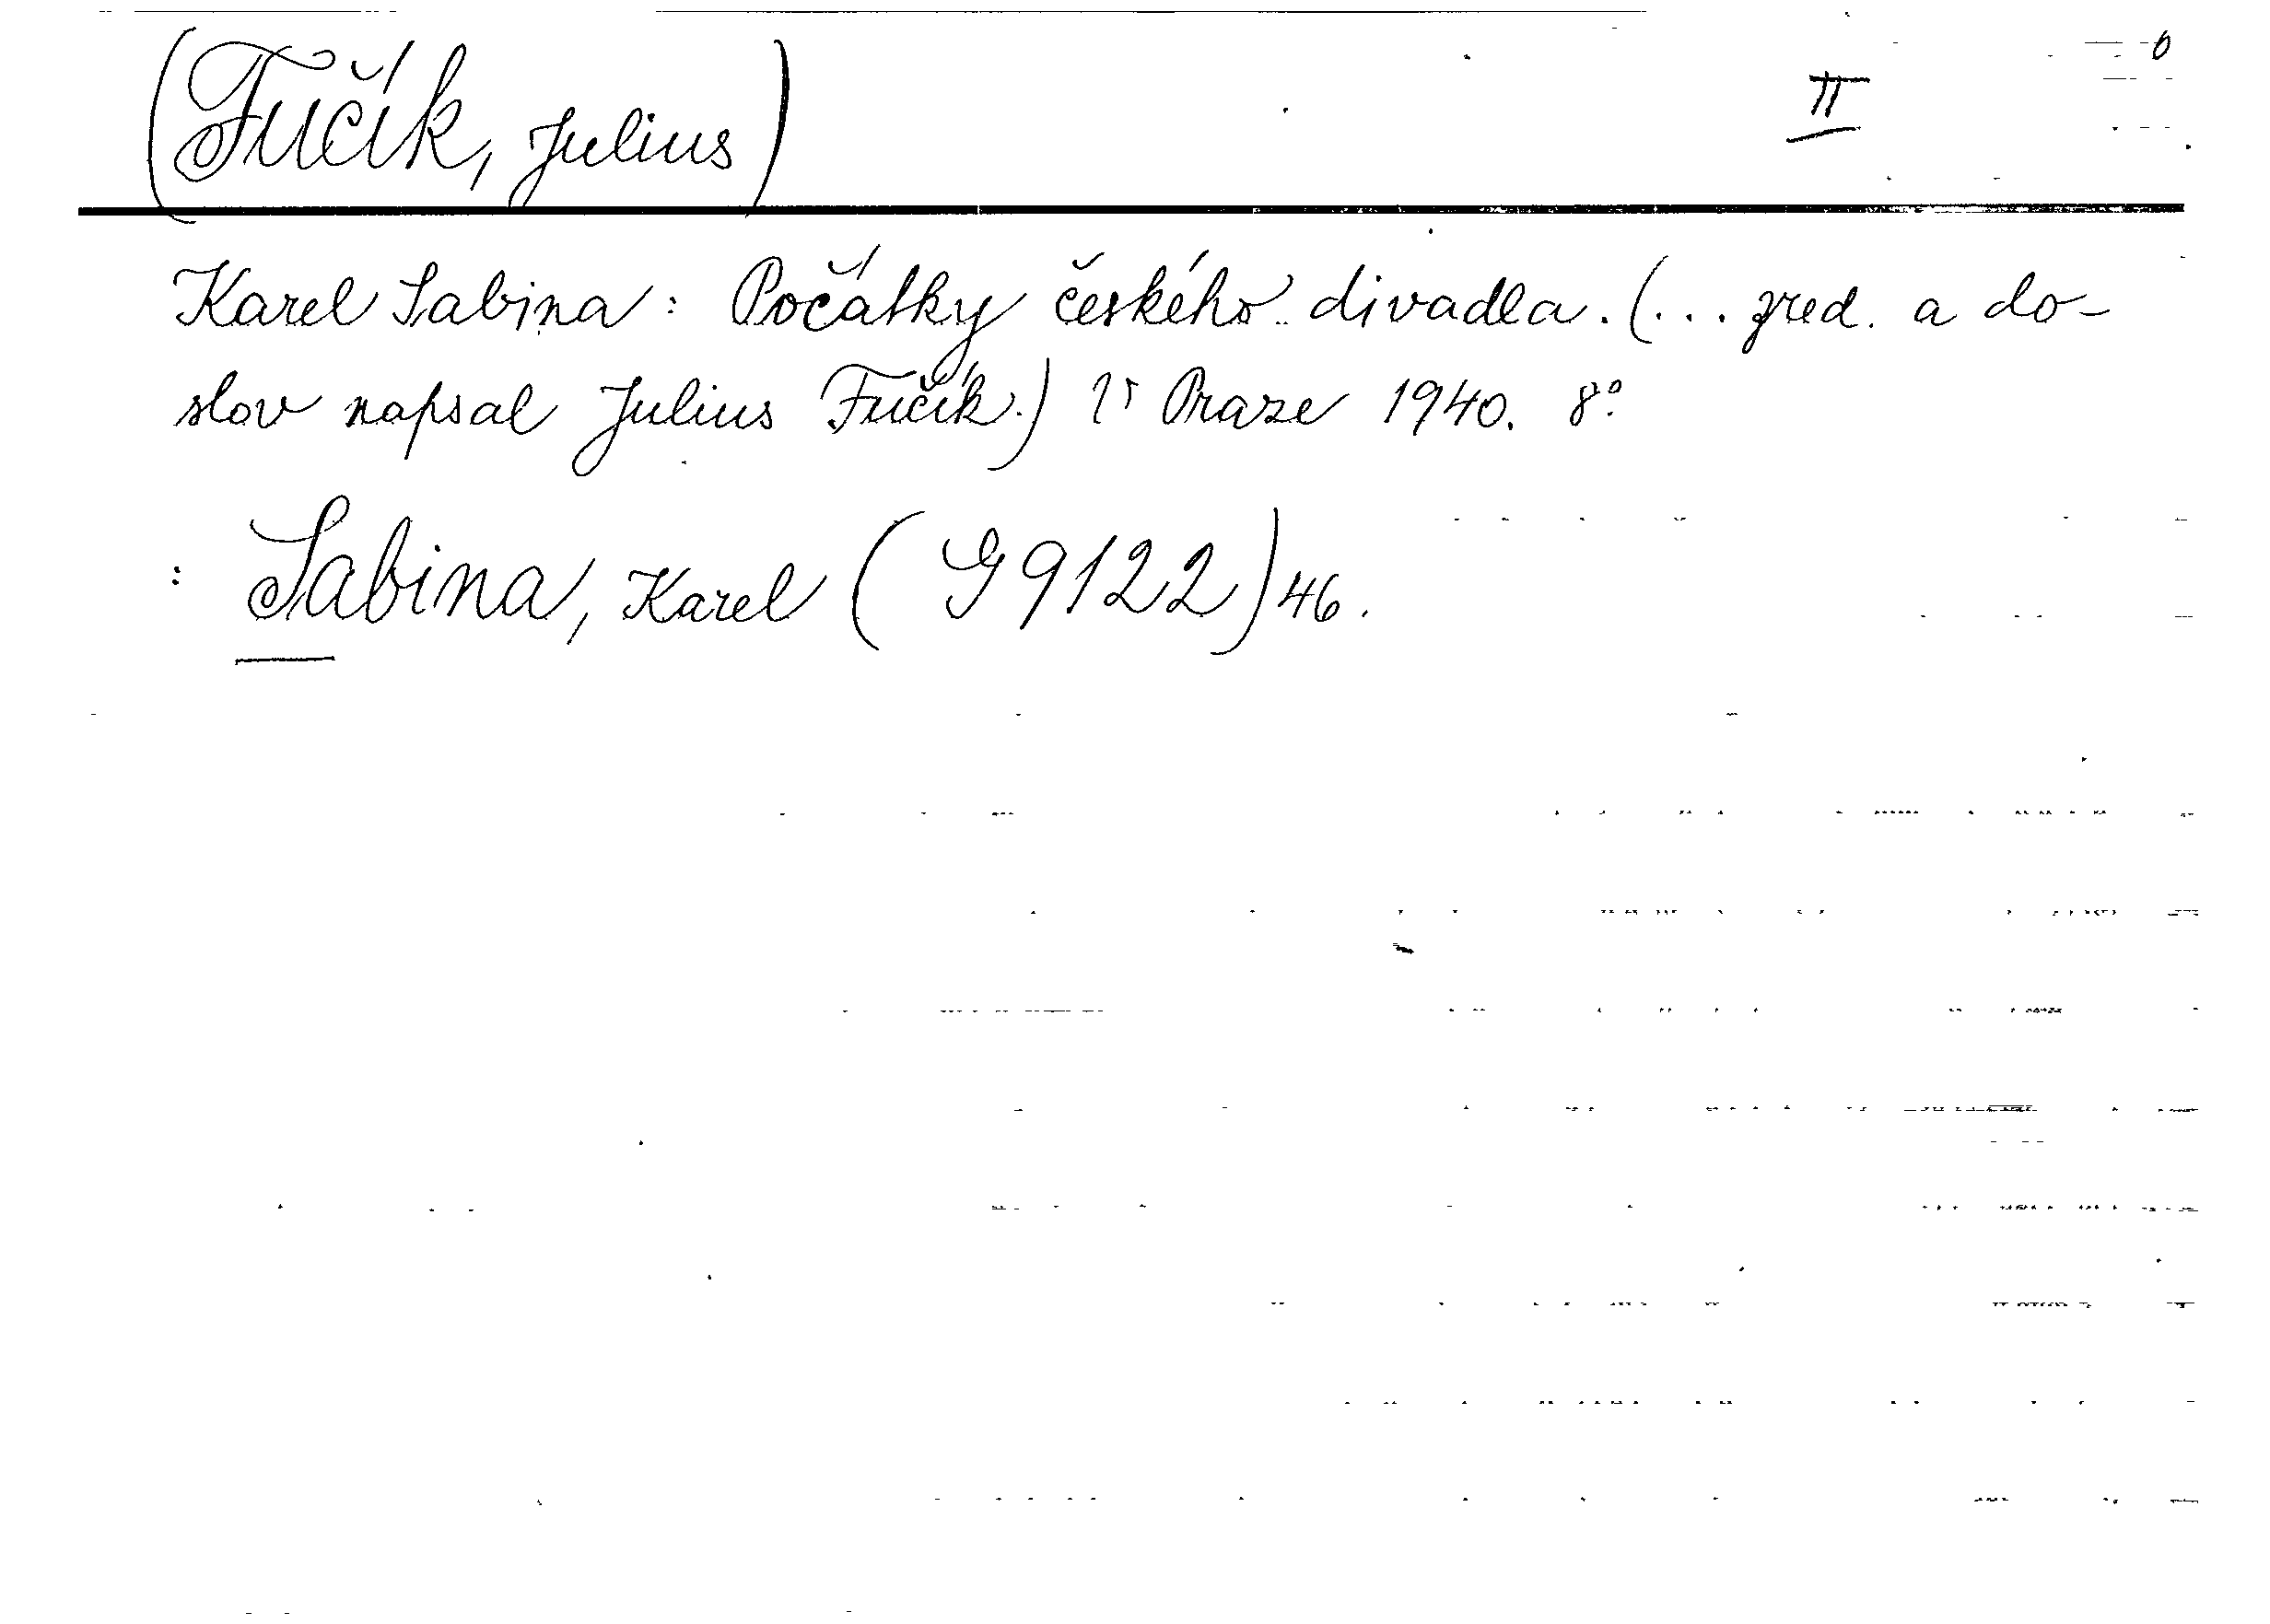 (Fučík, Julius) II 6
Karel Sabina: Počátky českého divadla. (... zred. a do-
slov napsal Julius Fučík.) V Praze 1940. 8°
: Sabina, Karel (G 9122) 46.